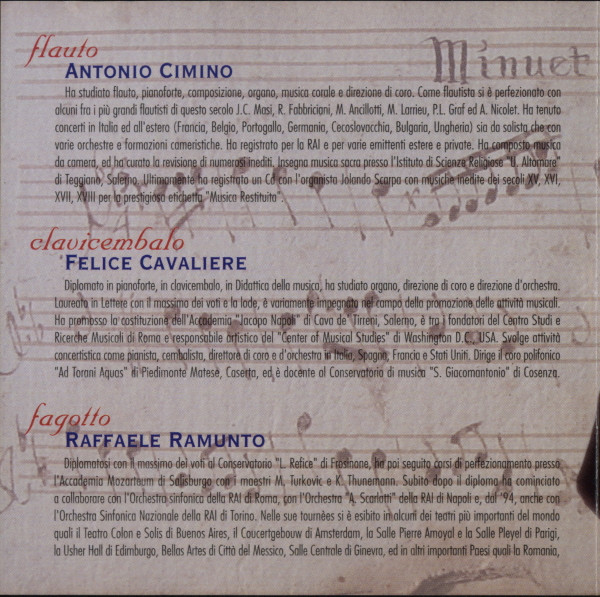 flauto
Minuet
ANTONIO CIMINO
Ha studiato flauto, pianoforte, composizione, organo, musica corale e direzione di coro. Come flautista si è perfezionato con
alcuni fra i più grandi flautisti di questo secolo J.C. Masi, R. Fabbriciani, M. Ancillotti, M. Larrieu, P.L. Graf ed A. Nicolet. Ha tenuto
concerti in Italia ed all'estero (Francia, Belgio, Portogallo, Germania, Cecoslovacchia, Bulgaria, Ungheria) sia da solista che con
varie orchestre e formazioni cameristiche. Ha registrato per la RAI e per varie emittenti estere e private. Ha composto musica
da camera, ed ha curato la revisione di numerosi inediti. Insegna musica sacra presso l'Istituto di Scienze Religiose "U. Altomare"
di Teggiano, Salerno. Ultimamente ha registrato un Cd con l'organista Jolando Scarpa con musiche inedite dei secoli XV, XVI,
XVII, XVIII per la prestigiosa etichetta "Musica Restituita".
clavicembalo
FELICE CAVALIERE
Diplomato in pianoforte, in clavicembalo, in Didattica della musica, ha studiato organo, direzione di coro e direzione d'orchestra.
Laureato in Lettere con il massimo dei voti e la lode, è variamente impegnato nel campo della promozione delle attività musicali.
Ha promosso la costituzione dell'Accademia "Jacopo Napoli" di Cava de' Tirreni, Salerno, è tra i fondatori del Centro Studi e
Ricerche Musicali di Roma e responsabile artistico del "Center of Musical Studies" di Washington D.C. USA. Svolge attività
concertistica come pianista, cembalista, direttore di coro e d'orchestra in Italia, Spagna, Francia e Stati Uniti. Dirige il coro polifonico
"Ad Torani Aquas" di Piedimonte Matese, Caserta, ed è docente al Conservatorio di musica "S. Giacomantonio" di Cosenza.
fagotto
RAFFAELE RAMUNTO
Diplomatosi con il massimo dei voti al Conservatorio "L. Refice" di Frosinone, ha poi seguito corsi di perfezionamento presso
l'Accademia Mozarteum di Salisburgo con i maestri M. Turkovic e K. Thunemann. Subito dopo il diploma ha cominciato
a collaborare con l'Orchestra sinfonica della RAI di Roma, con l'Orchestra "A. Scarlatti" della RAI di Napoli e, dal '94, anche con
l'Orchestra Sinfonica Nazionale della RAI di Torino. Nelle sue tournèes si è esibito in alcuni dei teatri più importanti del mondo
quali il Teatro Colon e Solis di Buenos Aires, il Coucertgebouw di Amsterdam, la Salle Pierre Amoyal e la Salle Pleyel di Parigi,
la Usher Hall di Edimburgo, Bellas Artes di Città del Messico, Salle Centrale di Ginevra, ed in altri importanti Paesi quali la Romania,